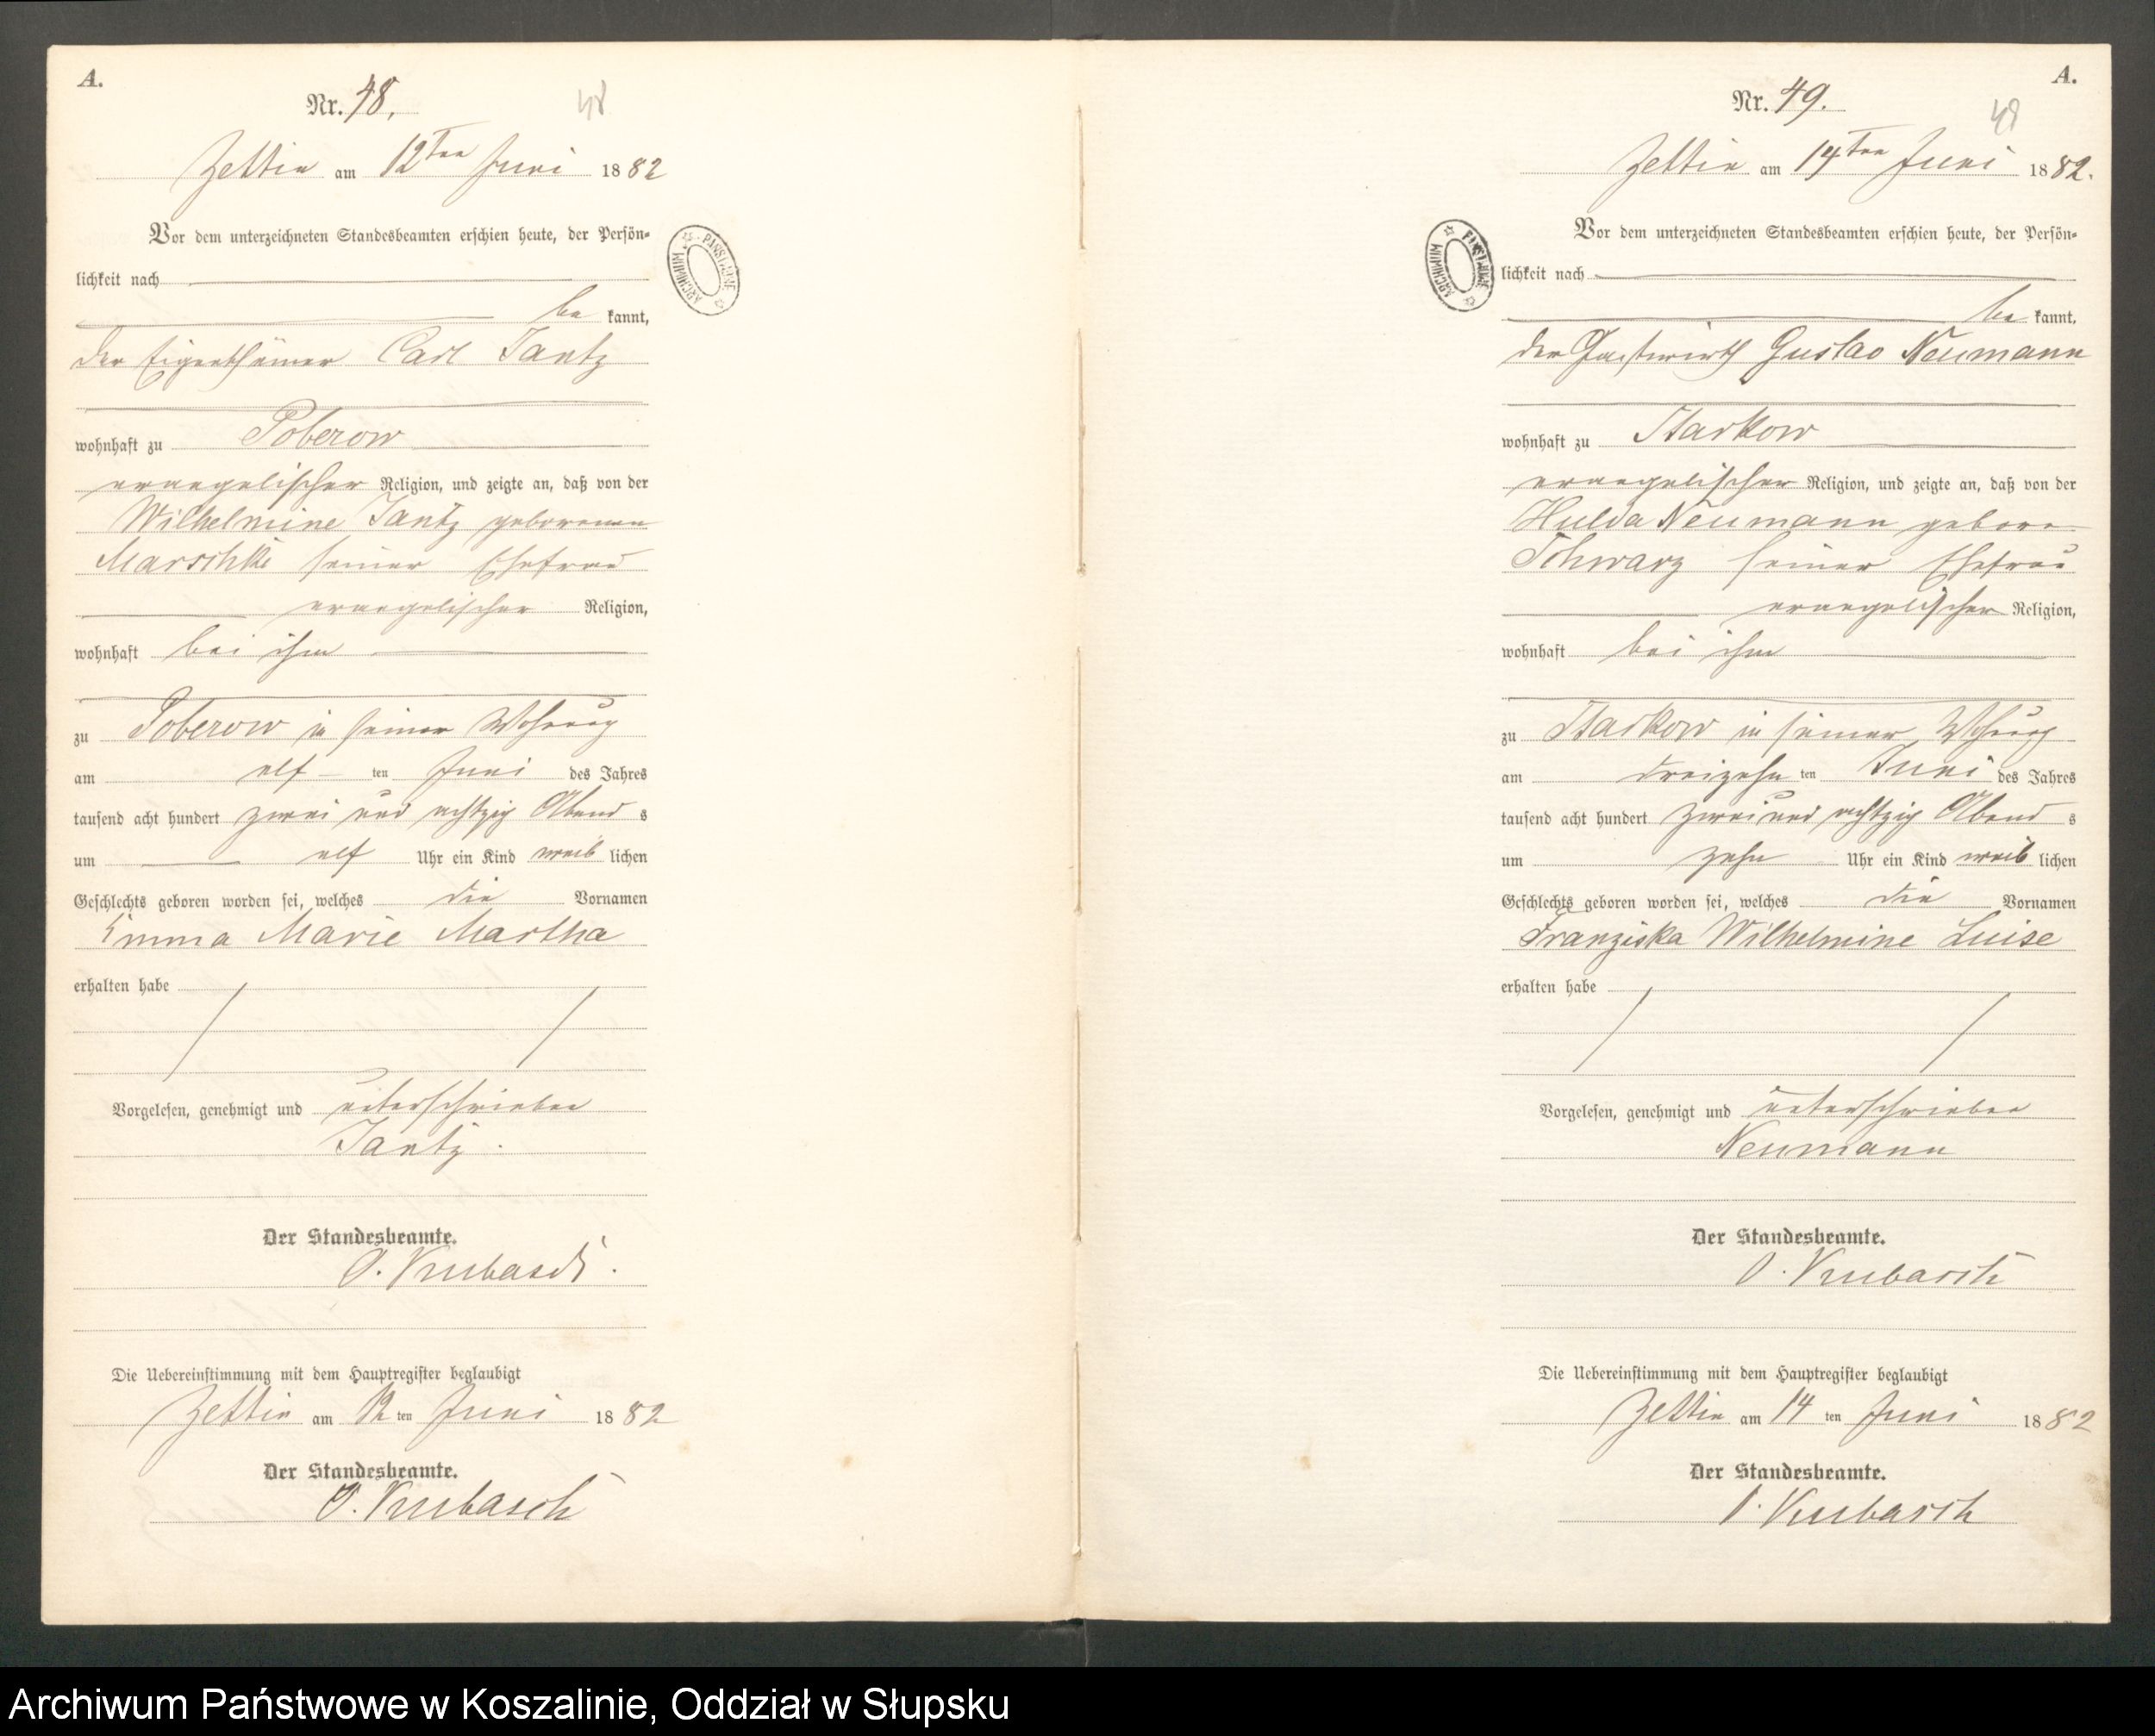 A.
Nr. 48.
48
Zettin am 12ten Juni 1882
Vor dem unterzeichneten Standesbeamten erschien heute, der Persön-
lichkeit nach
be kannt,
der Eigenthümer Carl Jantz
wohnhaft zu Poberow
evangelischer Religion, und zeigte an, daß von der
Wilhelmine Jantz geborenen
Marschke seiner Ehefrau
evangelischer Religion,
wohnhaft bei ihm
zu Poberow in seiner Wohnung
am elf ten Juni des Jahres
tausend acht hundert zwei und achtzig Abend s
um elf Uhr ein Kind weib lichen
Geschlechts geboren worden sei, welches die Vornamen
Emma Marie Martha
erhalten habe
Vorgelesen, genehmigt und unterschrieben
Jantz.
Der Standesbeamte.
O. Krubasch.
Die Uebereinstimmung mit dem Hauptregister beglaubigt
Zettin am 12 ten Juni 1882
Der Standesbeamte.
O. Krubasch
PAŃSTWOWE ARCHIWUM
A.
Nr. 49.
49
Zettin am 14ten Juni 1882.
Vor dem unterzeichneten Standesbeamten erschien heute, der Persön-
lichkeit nach
be kannt,
der Gastwirth Gustav Neumann
wohnhaft zu Starkow
evangelischer Religion, und zeigte an, daß von der
Hulda Neumann gebore
Schwarz seiner Ehefrau
evangelischer Religion,
wohnhaft bei ihm
zu Starkow in seiner Wohnung
am dreizehn ten Juni des Jahres
tausend acht hundert zwei und achtzig Abend s
um zehn Uhr ein Kind weib lichen
Geschlechts geboren worden sei, welches die Vornamen
Franziska Wilhelmine Luise
erhalten habe
Vorgelesen, genehmigt und unterschrieben
Neumann
Der Standesbeamte.
O. Krubasch
Die Uebereinstimmung mit dem Hauptregister beglaubigt
Zettin am 14 ten Juni 1882
Der Standesbeamte.
O. Krubasch
PAŃSTWOWE ARCHIWUM
Archiwum Państwowe w Koszalinie, Oddział w Słupsku